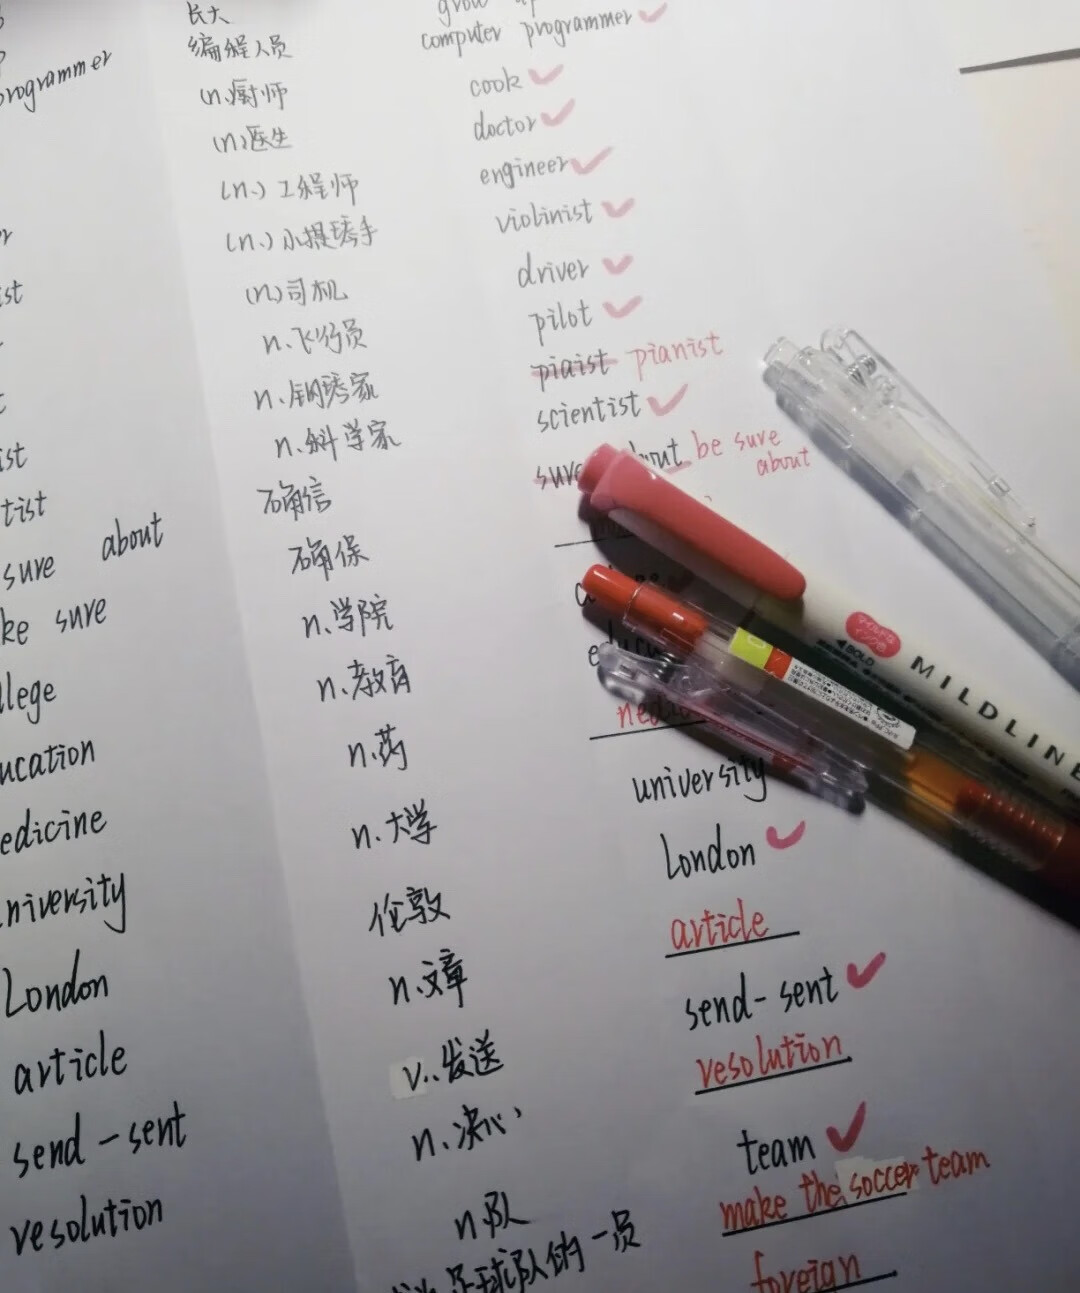 长大 grow
programmer 编程人员 computer programmer
(n.)厨师 cook
(n.)医生 doctor
(n.)工程师 engineer
(n.)小提琴手 violinist
(n.)司机 driver
n.飞行员 pilot
n.钢琴家 piaist pianist
n.科学家 scientist
sure about 确信 sure be sure
about
sure 确保
n.学院
ucation n.教育
edicine n.药
niversity n.大学 university
London 伦敦 London
article n.文章 article
send-sent v..发送 send-sent
resolution n.决心 resolution
n.队 team
足球队的一员 make the soccer team
foreign
BOLD
MILDLINE